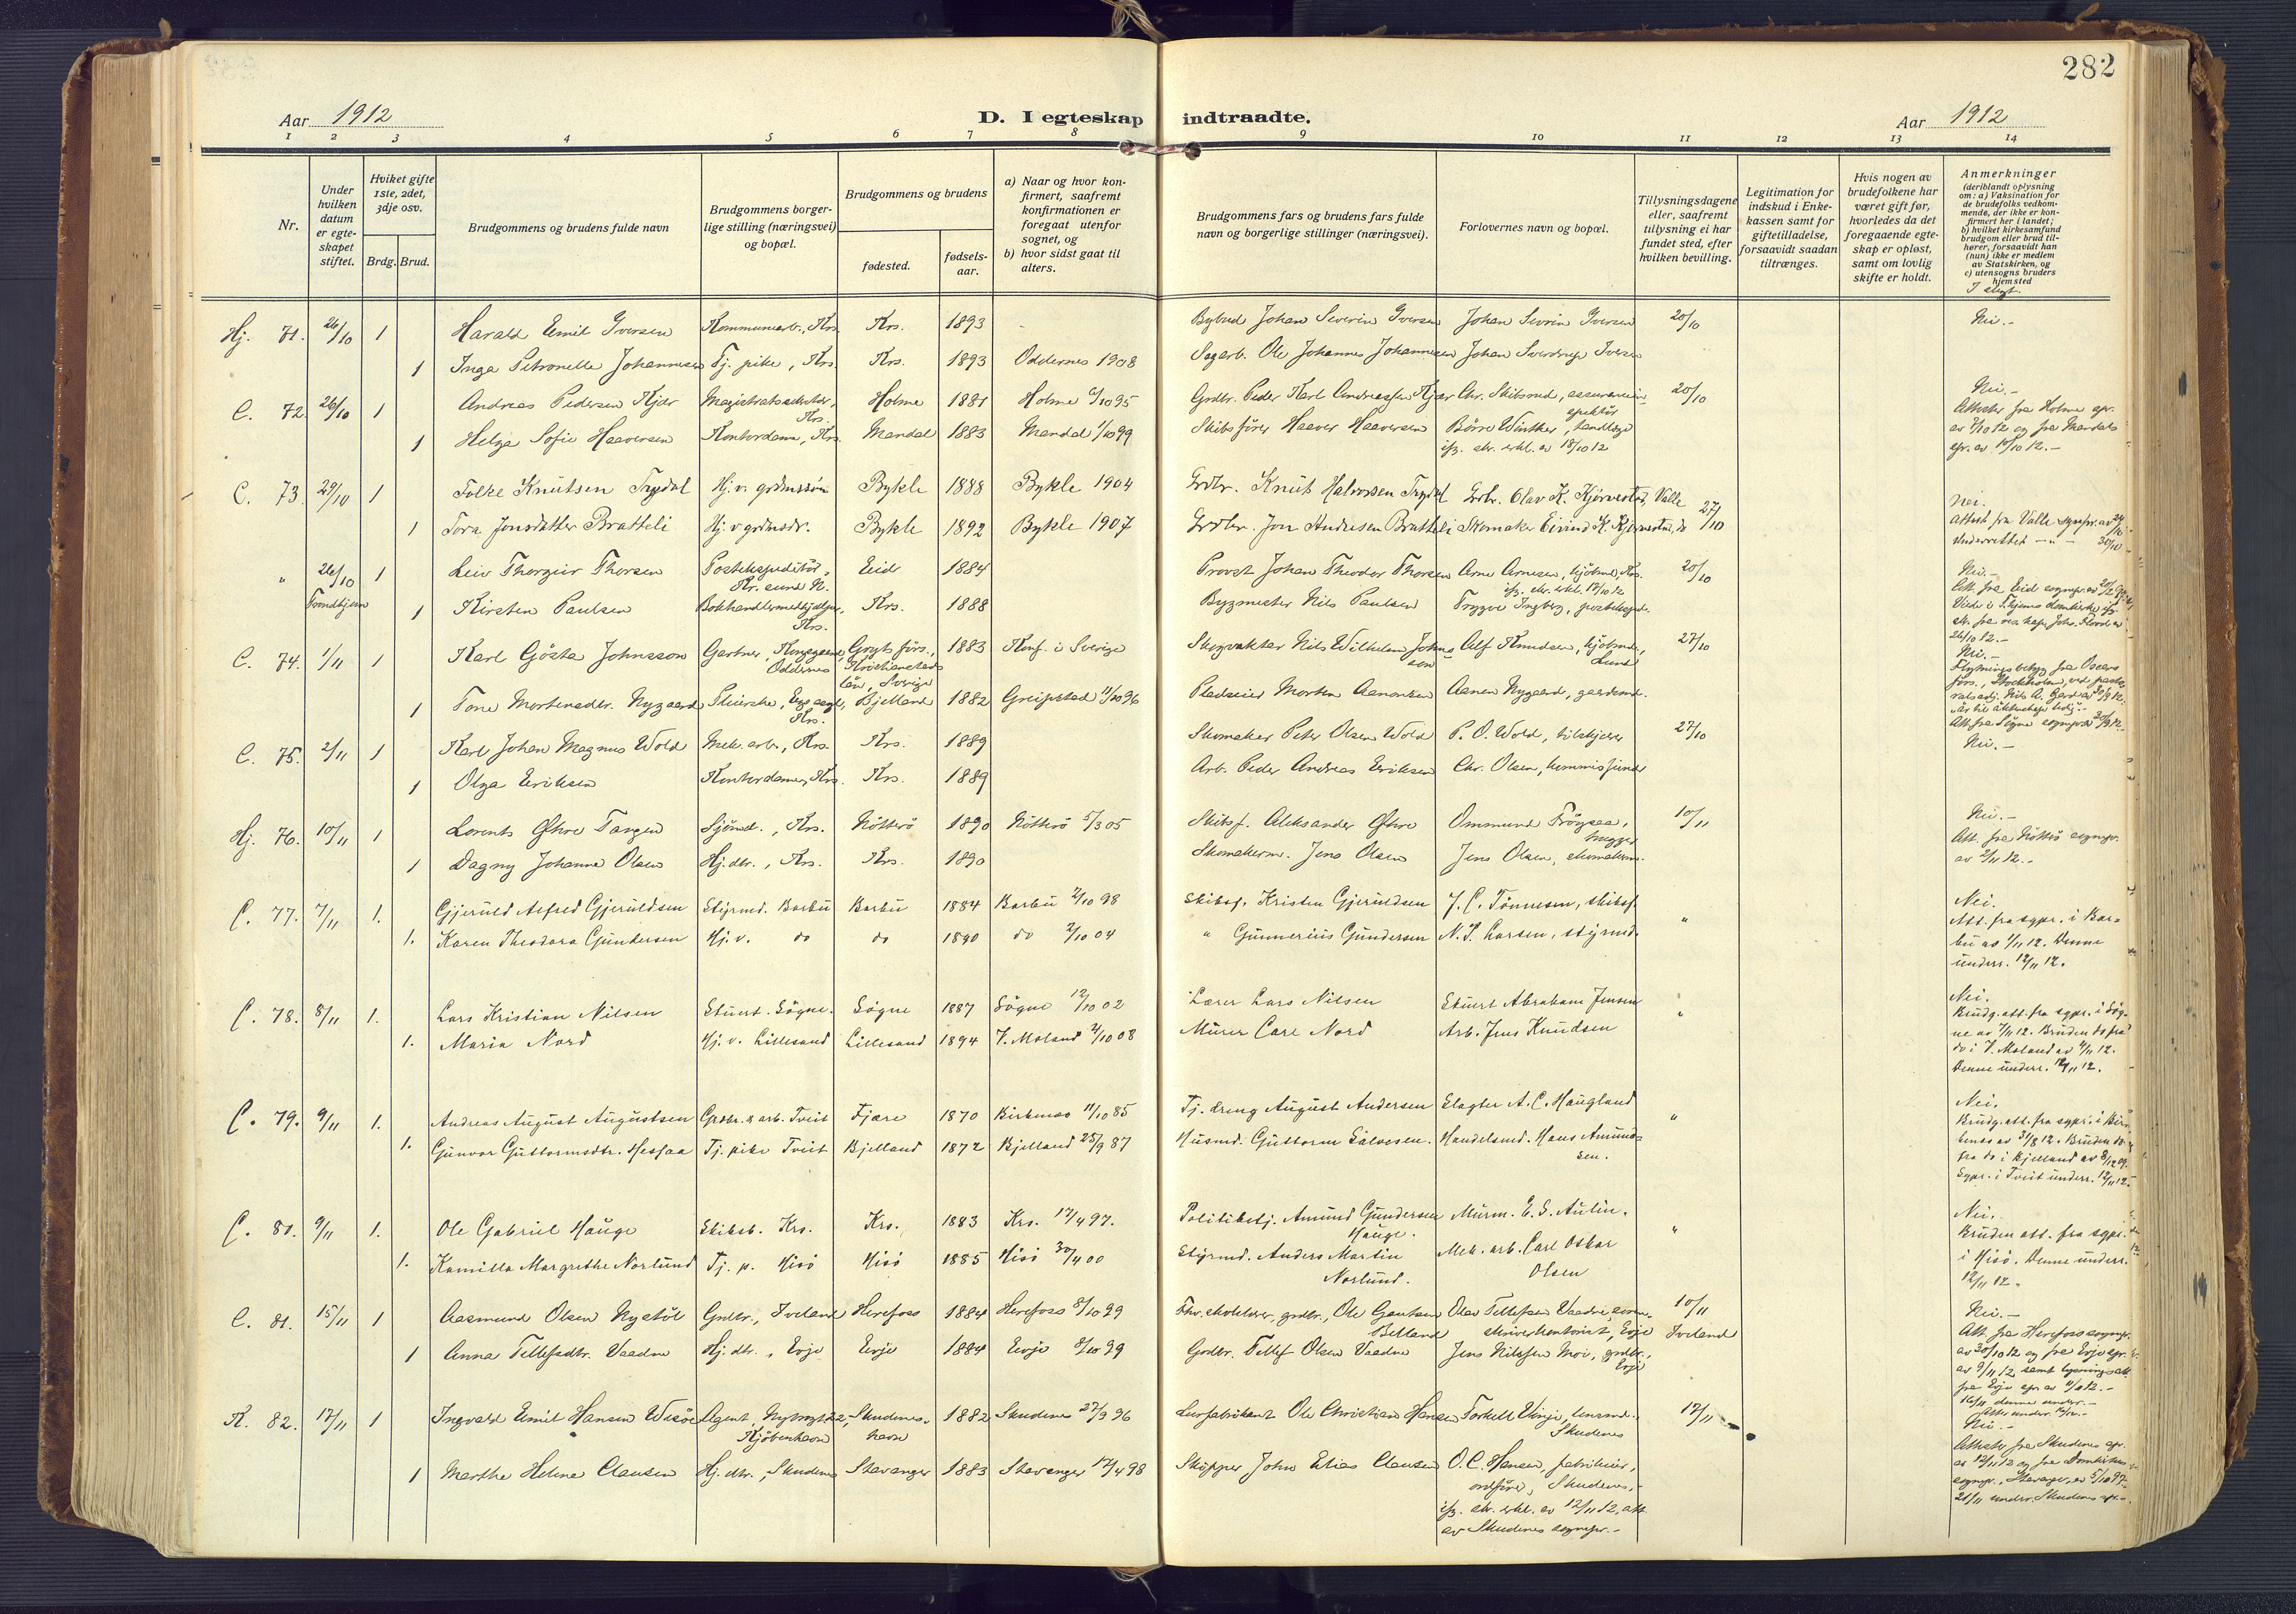 282
Aar 1912
D. I egteskap indtraadte.
Aar 1912
1 2 3 4 5 6 7 8 9 10 11 12 13 14
Nr.
Under hvilken datum er egteskapet stiftet.
Hviket gifte 1ste, 2det, 3dje osv.
Brdg. Brud.
Brudgommens og brudens fulde navn
Brudgommens borgerlige stilling (næringsvei) og bopæl.
Brudgommens og brudens
fødested.
fødselsaar.
a) Naar og hvor konfirmert, saafremt konfirmationen er foregaat utenfor sognet, og
b) hvor sidst gaat til alters.
Brudgommens fars og brudens fars fulde navn og borgerlige stillinger (næringsvei).
Forlovernes navn og bopæl.
Tillysningsdagene eller, saafremt tillysning ei har fundet sted, efter hvilken bevilling.
Legitimation for indskud i Enkekassen samt for giftetilladelse, forsaavidt saadan tiltrænges.
Hvis nogen av brudefolkene har været gift før, hvorledes da det foregaaende egteskap er opløst, samt om lovlig skifte er holdt.
Anmerkninger
(deriblandt oplysning om: a) Vaksination for de brudefolks vedkommende, der ikke er konfirmert her i landet; b) hvilket kirkesamfund brudgom eller brud tilhører, forsaavidt han (hun) ikke er medlem av Statskirken, og c) utensogns bruders hjemsted
I slegt.
Hj. 71. 26/10 1 Harald Emil Iversen Kommunearb., Krs. Krs. 1893 - Bybud Johan Severin Iversen Johan Sevrin Iversen 20/10 Nei.-
1 Inga Petronelle Johannesen Tj. pike, Krs. Krs. 1893 Oddernes 1908 Sagarb. Ole Johannes Johannesen Johan Sverdrup Iversen
C. 72. 26/10 1 Andreas Pedersen Kjær Magistratssekretær, Krs. Holme 1881 Holme 6/10 95 Grdbr. Peder Karl Andreassen Kjær Chr. Skibsrud, assuranceinspektör 20/10 Nei.-
Attester fra Holme spr. av 7/10 12 og fra Mandals spr. av 10/10 12.-
1 Helga Sofie Haaversen Kontordame, Krs. Mandal 1883 Mandal 1/10 99 Skibsfører Haaver Haaversen Börre Winther, tandlæge
ifg. skr. erkl. av 18/10 12
C. 73. 29/10 1 Folke Knutsen Trydal Hj. v. grdmssøn Bykle 1888 Bykle 1904 Grdbr. Knut Halvorsen Trydal Grbr. Olav K. Kjørvestad, Valle 27/10 Nei.
Attest fra Valle sgnspr. av 24/10
Underrettet -"- 30/10
1 Tora Jonsdatter Bratteli Hj. v grdmsdr. Bykle 1892 Bykle 1907 Grdbr. Jon Andresen Bratteli Skomaker Eivind K. Kjørvestad, do
" 26/10 Trondhjem 1 Leiv Thorgeir Thorsen Postekspeditör, Kr. sund N. Eid 1884 Provst Johan Theodor Thorsen Arne Arnesen, kjöbmd, Krs. 20/10 Nei.-
ifg. skr. erkl. 17/10 12
1 Kirsten Paulsen Bokhandlermedhjælper, Krs. Krs. 1888 Bygmester Nils Paulsen Trygve Ingberg, postekspd.
C. 74. 1/11 1 Karl Gösta Johnsson Gartner, Kongsgaard, Oddernes Gryts förs., Kristianstads län, Sverige 1883 Konf. i Sverige Skogvakter Nils Wilhelm Johnsson Alf Knudsen, kjöbmd., Lund 27/10 Nei.-
1 Tone Mortensdtr. Nygaard Steierske, Krs. Bjelland 1882 Greipstad 11/10 96 Pladseier Morten Aanonsen Aanen Nygaard, gaardmd.
C. 75. 2/11 1 Karl Johan Magnus Wold Mek. arb., Krs. Krs. 1889 Skomaker Peter Olsen Wold P. O. Wold, tilskjærer 27/10 Nei.-
1 Olga Eriksen Kontordame, Krs. Krs. 1889 Arb. Peder Andreas Eriksen Chr. Olsen, kommisjonær
Hj. 76. 10/11 1 Lorents Øhre Tangen Sjömd., Krs. Nötterö 1890 Nötterö 5/3 05 Skibsf. Aleksander Øhre Ommund Frögsaa, brygger 10/11 Nei.-
Att. fra Nötterö sognspr. av 2/11 12.-
1 Dagny Johanne Olsen Hj. dtr., Krs. Krs. 1890 Skomakerm. Jens Olsen Jens Olsen, skomakerm.
C. 77. 7/11 1. Gjeruld Alfred Gjeruldsen Styrmd. Barbu Barbu 1884 Barbu 2/10 98 Skibsf. Kristen Gjeruldsen J. C. Tönnesen, skibsf. " Nei.
Att. fra sgpr. i Barbu av 1/11 12. Denne underr. 12/11 12.
1. Karen Theodora Gundersen Hj. v. do do 1890 do 2/10 04 " Gunnerius Gundersen N. P. Larsen, styrmd.
C. 78. 8/11 1. Lars Kristian Nilsen Stuert. Søgne. Søgne 1887 Søgne 12/10 02 Lærer Lars Nilsen Stuert Abraham Jensen " Nei.
Brudg. att. fra sgpr. i Søgne av 7/11 12. Bruden do fra do i V. Moland av 4/11 12.
Denne underr. 12/11 12.
1. Maria Nord Hj. v. Lillesand Lillesand 1894 V. Moland 4/10 08 Murer Carl Nord Arb. Jens Knudsen
C. 79. 9/11 1. Andreas August Augustsen Grdbr. & arb. Tveit Fjære 1870 Birkenes 11/10 85 Tj. dreng August Andersen Slagter A. C. Haugland " Nei.
Brudg. att. fra sgpr. i Birkenes av 31/8 12. Bruden do fra do i Bjelland av 8/12 09.
Sgpr. i Tveit underr. 12/11 12.
1. Gunvor Guttormsdtr. Hessaa Tj. pike Tveit Bjelland 1872 Bjelland 25/9 87 Husmd. Guttorm Salvesen. Handelsmd. Hans Amundsen.
C. 80. 9/11 1. Ole Gabriel Hauge Skibsb. Krs. Krs. 1883 Krs. 17/4 97. Politibetj. Amund Gundersen Hauge. Murm. E. S. Aulin. " Nei.
Bruden att. fra sgpr. i Hisö. Denne underr. 12/11 12.
1. Kamilla Margrethe Norlund Tj. p. Hisö Hisö 1885 Hisö 30/4 00 Styrmd. Anders Martin Norlund. Mek. arb. Carl Oskar Olsen
C. 81. 15/11 1 Aasmund Olsen Nystöl Grdbr., Iveland Herefoss 1884 Herefoss 8/10 99 Fhv. skoleholder, grdbr., Ole Gautsen Belland Olav Tellefsen Vaadne, sorenskriverkontorist, Evje 10/11 Iveland Nei.-
Att. fra Herefoss sognpr. av 30/10 12 og fra Evje spr. av 9/11 12, samt lysningsatt. fra Evje spr. av 11/11 12.-
1 Anna Tellefsdtr. Vaadne Hj. dtr., Evje Evje 1884 Evje 8/10 99 Grdbr. Tellef Olsen Vaadne Jens Nilssen Moi, grdbr., Evje
K. 82. 17/11 1 Ingvald Emil Hansen Wisöe Agent, Kjöbenhavn Skudeneshavn 1882 Skudenes 27/9 96 Ole Christian Hansen Torkell Vinje, lensmd., Skudenes 17/11 Nei.-
1 Marthe Helene Clausen Hj. dtr., Skudenes Stavanger 1883 Stavanger 17/4 98 Skipper John Elias Clausen O. C. Hansen, fabrikeier, ordfører, Skudenes,-
ifg. skr. erkl. av 12/11 12, att. av Skudenes sognepr.-